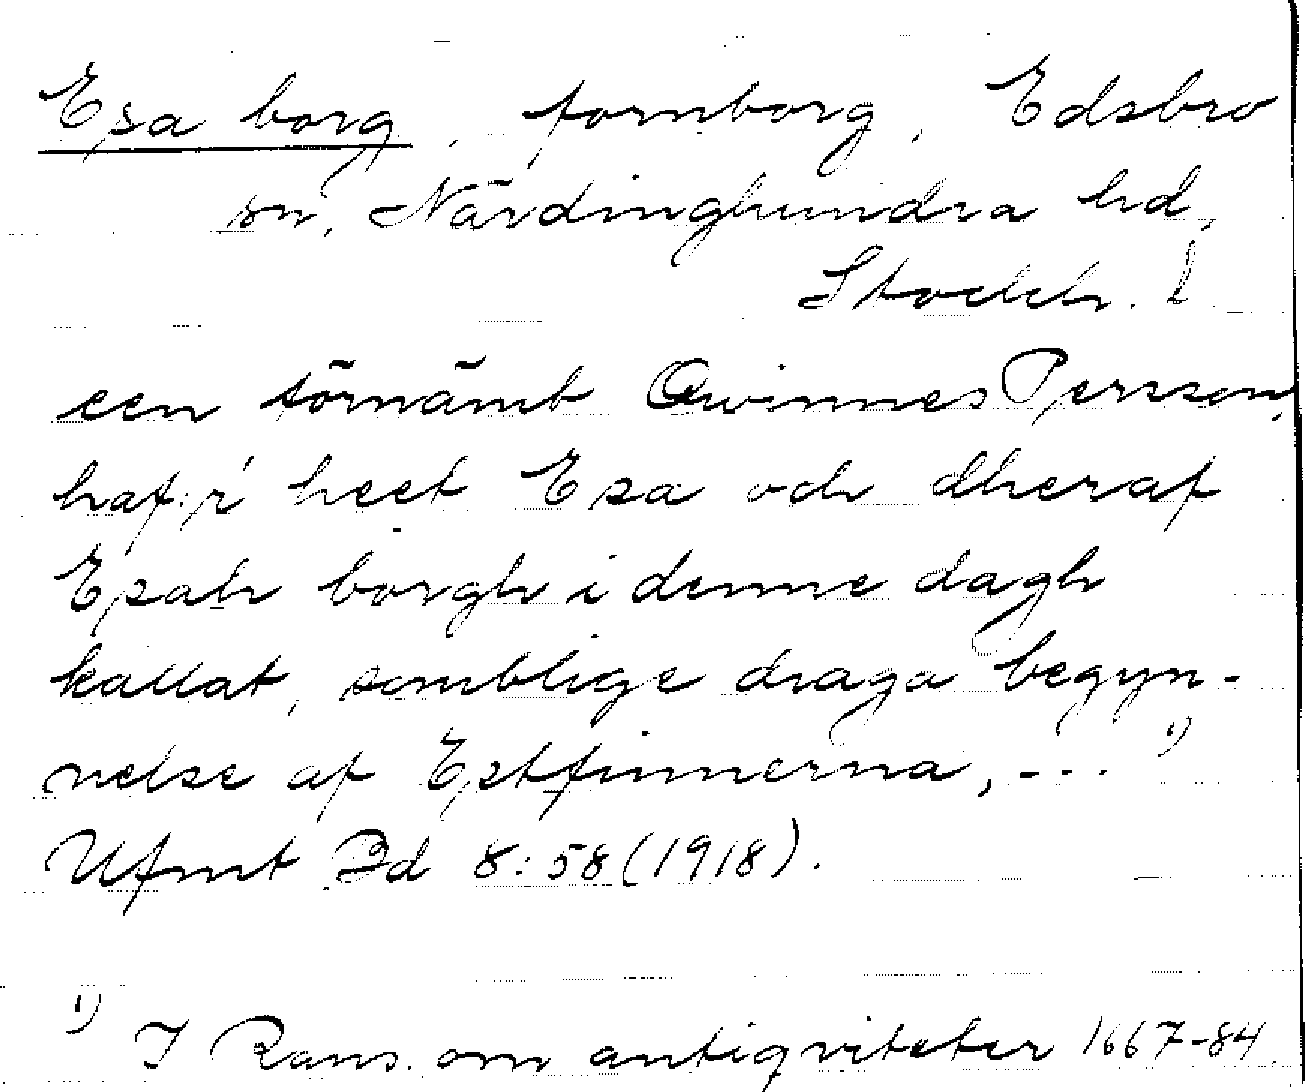 Esa borg, fornborg, Edsbro
sn, Närdinghundra hd,
Stockh. l
een förnämb Qwinnes Persson,
haf:r heet Esa och dheraf
Esah borgh i denne dagh
kallat, somblige draga begyn-
nelse af Estfinnerna, --- 1)
Ufmt Bd 8:58 (1918).
1) I Rans. om antiqviteter 1667-84